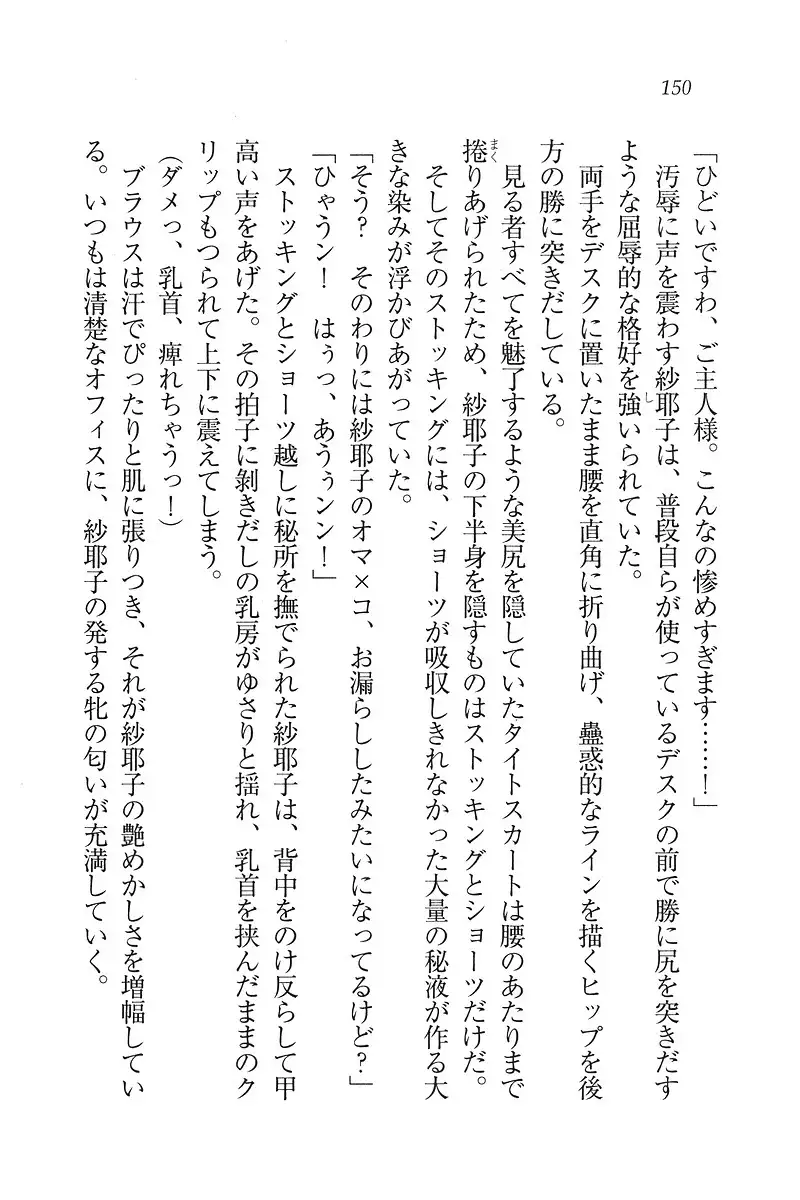 150
「ひどいですわ、ご主人様。こんなの惨めすぎます……！」
汚辱に声を震わす紗耶子は、普段自らが使っているデスクの前で勝に尻を突きだす
ような屈辱的な格好を強いられていた。
両手をデスクに置いたまま腰を直角に折り曲げ、蠱惑的なラインを描くヒップを後
方の勝に突きだしている。
見る者すべてを魅了するような美尻を隠していたタイトスカートは腰のあたりまで
捲りあげられたため、紗耶子の下半身を隠すものはストッキングとショーツだけだ。
そしてそのストッキングには、ショーツが吸収しきれなかった大量の秘液が作る大
きな染みが浮かびあがっていた。
「そう？　そのわりには紗耶子のオマ×コ、お漏らししたみたいになってるけど？」
「ひゃうン！　はぅっ、あうぅンン！」
ストッキングとショーツ越しに秘所を撫でられた紗耶子は、背中をのけ反らして甲
高い声をあげた。その拍子に剝きだしの乳房がゆさりと揺れ、乳首を挟んだままのク
リップもつられて上下に震えてしまう。
（ダメっ、乳首、痺れちゃうっ！）
ブラウスは汗でぴったりと肌に張りつき、それが紗耶子の艶めかしさを増幅してい
る。いつもは清楚なオフィスに、紗耶子の発する牝の匂いが充満していく。